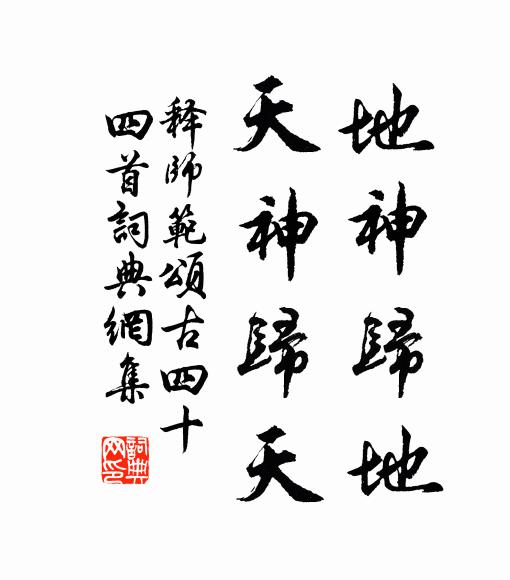 地神歸地
天神歸天
释師範頌古四十
四首詞典網集
詞典网印